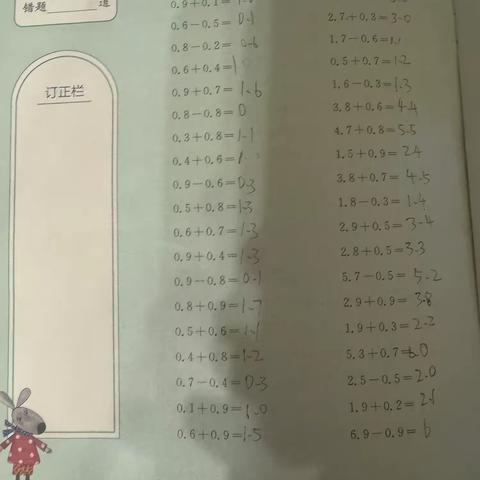 错题 道
订正栏
0.9+0.1=
0.6-0.5=0.1
0.8-0.2=0.6
0.6+0.4=1
0.9+0.7=1.6
0.8-0.8=0
0.3+0.8=1.1
0.4+0.6=1.
0.9-0.6=0.3
0.5+0.8=1.3
0.6+0.7=1.3
0.9+0.4=1.3
0.9-0.8=0.1
0.8+0.9=1.7
0.5+0.6=1.1
0.4+0.8=1.2
0.7-0.4=0.3
0.1+0.9=1.0
0.6+0.9=1.5
2.7+0.3=3.0
1.7-0.6=1.1
0.5+0.7=1.2
1.6-0.3=1.3
3.8+0.6=4.4
4.7+0.8=5.5
1.5+0.9=2.4
3.8+0.7=4.5
1.8-0.3=1.4
2.9+0.5=3.4
2.8+0.5=3.3
5.7-0.5=5.2
2.9+0.9=3.8
1.9+0.3=2.2
5.3+0.7=6.0
2.5-0.5=2.0
1.9+0.2=2.1
6.9-0.9=6